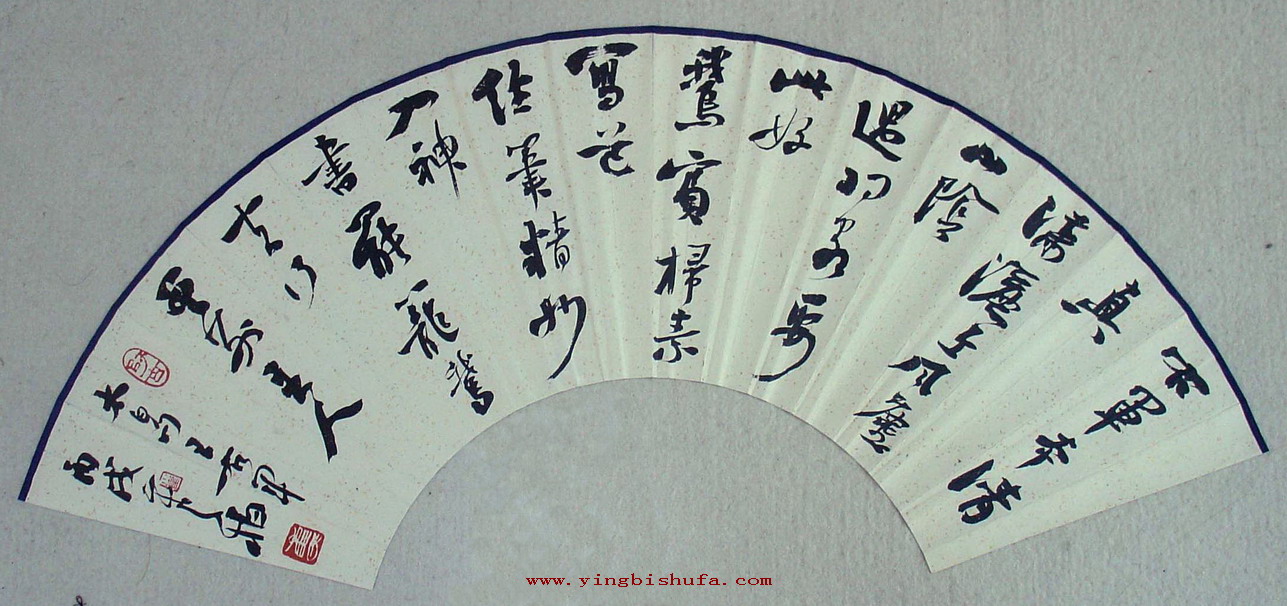 右軍本清
真
瀟灑出風塵
山陰
過羽客愛
此好
鵝賓掃素
寫道
經筆精妙
入神
書罷籠鵝
去何
曾別主人
李白 王右軍
丙戌
www.yingbishufa.com